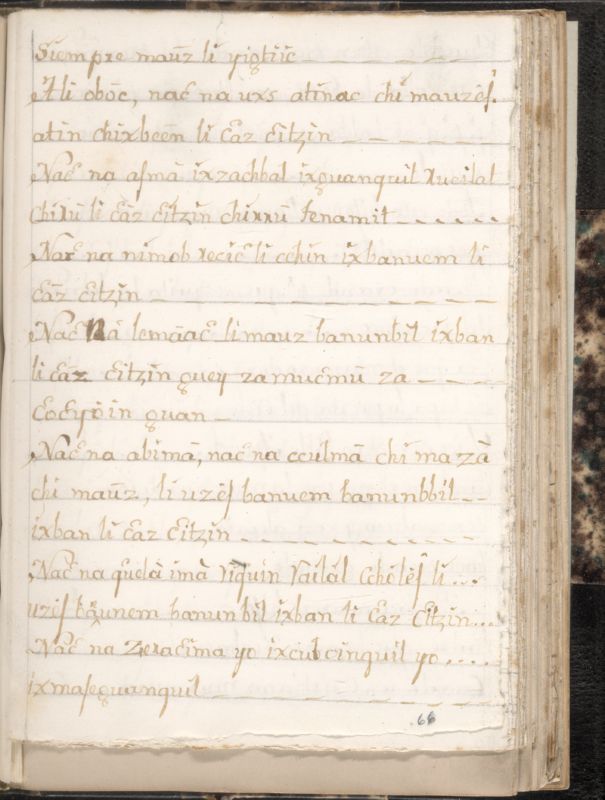 Siempre maūz li yigtiic
A li oboc, nac na uxs atinac chi mauzes.
atin chixbeēn li caz citzin
Nac na asmā ixzachbal ixguanquil xucilal
chirū li cāz citzin chixxū tenamit
Nac na nimob xecic li cchin ixbanuem li
cāz citzin
Nac Na lemāac li mauz banunbil ixban
li caz citzin guey zamucmū za
cocyoin guan
Nac na abimā, nac na cculmā chi ma zā
chi mauz, li uzes banuem banunbbil
ixban li caz citzin
Nac na quelā imā riquin railal ccholēs li...
uzes baunem banunbil ixban li caz citzin...
Nac na zeracima yo ixcubcinquil yo....
ixmaseguanquil
66